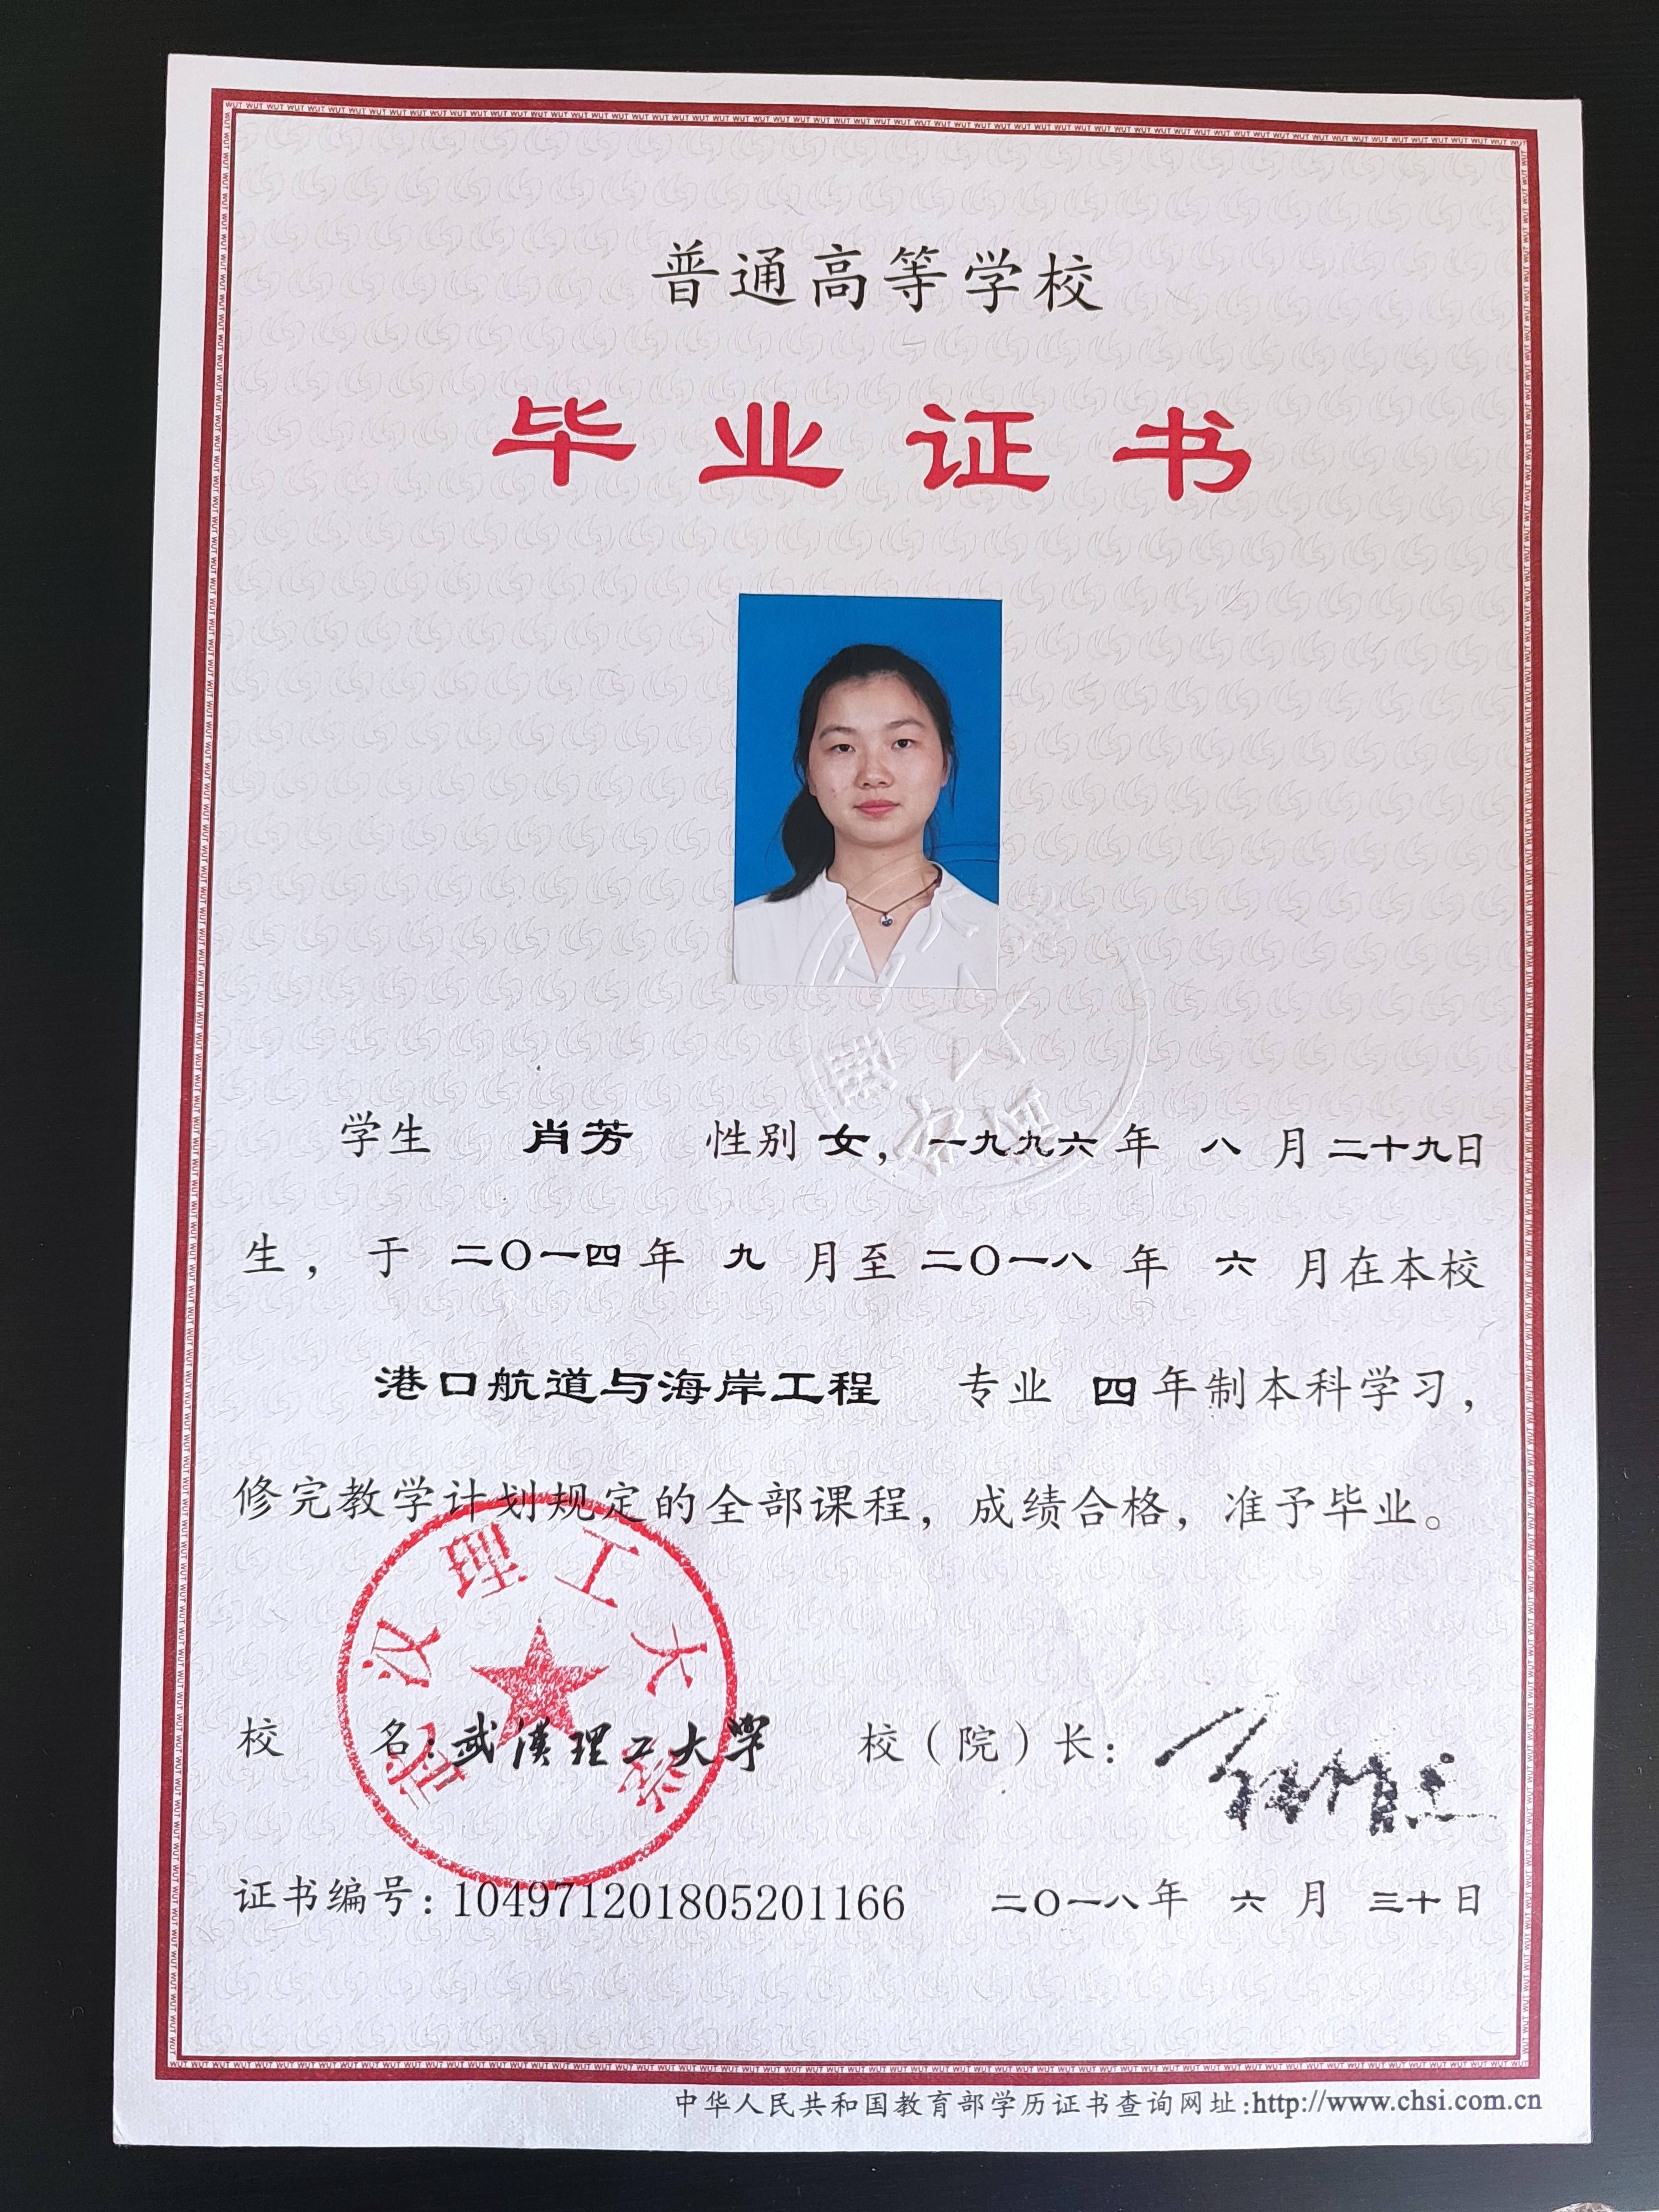 普通高等学校
毕业证书
学生 肖芳 性别 女，一九九六年 八 月二十九日
生，于 二〇一四年 九 月至二〇一八 年 六 月在本校
港口航道与海岸工程 专业 四 年制本科学习，
修完教学计划规定的全部课程，成绩合格，准予毕业。
武汉理工大学
校 名：武汉理工大学 校（院）长：
证书编号：104971201805201166 二〇一八年 六 月 三十日
中华人民共和国教育部学历证书查询网址：http://www.chsi.com.cn